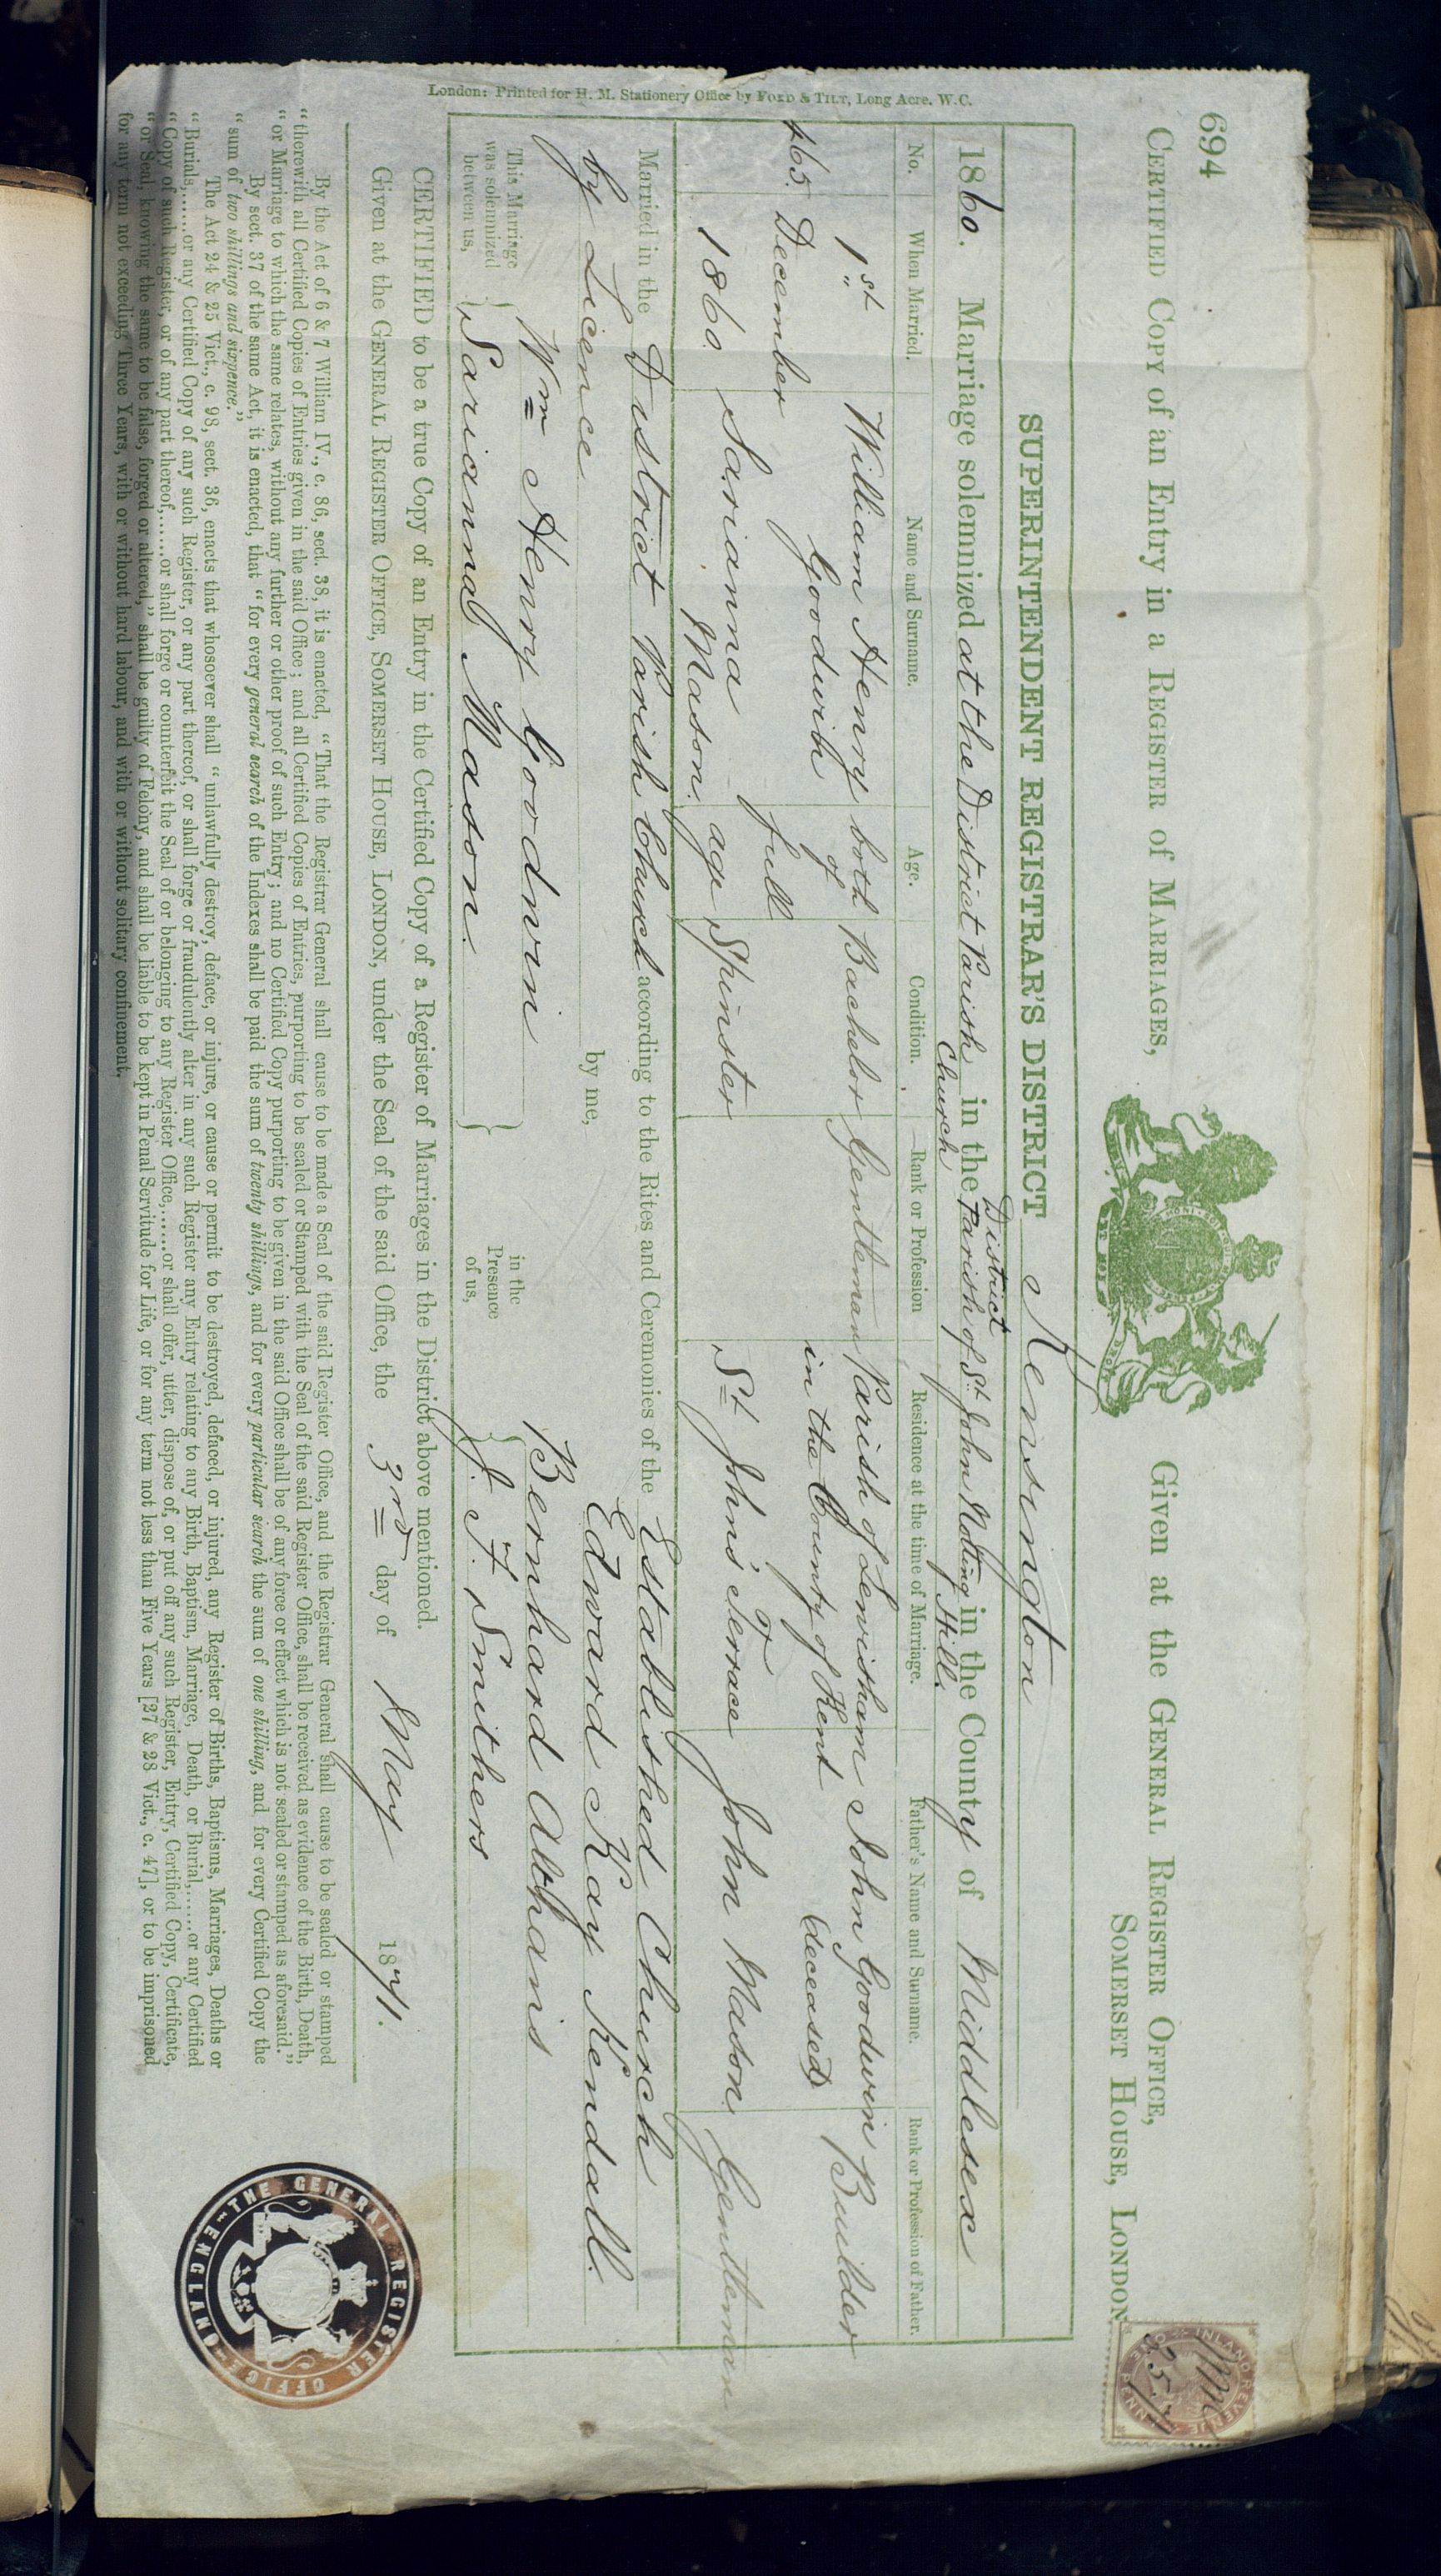 694
CERTIFIED COPY of an Entry in a REGISTER of MARRIAGES,
Given at the GENERAL REGISTER OFFICE,
SOMERSET HOUSE, LONDON
INLAND REVENUE
ONE PENNY
SUPERINTENDENT REGISTRAR'S DISTRICT Kensington
1860. Marriage solemnized at the District Parish Church in the District Parish of St. John Notting Hill. in the County of Middlesex
No. When Married. Name and Surname. Age. Condition. Rank or Profession Residence at the time of Marriage. Father's Name and Surname. Rank or Profession of Father.
465. 1st December 1860. William Henry Goodwin both of full age Bachelor Gentleman Parish of Lewisham in the County of Kent John Goodwin (deceased) Builder
Sarianna Mason. Spinster St Johns' Terrace John Mason Gentleman
Married in the District Parish Church according to the Rites and Ceremonies of the Established Church
by Licence by me, Edward Kay Kendall.
This Marriage was solemnized between us, Wm Henry Goodwin
Sarianna Mason.
in the Presence of us, Bernhard Althans
J. F. Smithers
CERTIFIED to be a true Copy of an Entry in the Certified Copy of a Register of Marriages in the District above mentioned.
Given at the GENERAL REGISTER OFFICE, SOMERSET HOUSE, LONDON, under the Seal of the said Office, the 3rd day of May 1871.
By the Act of 6 & 7 William IV., c. 86, sect. 38, it is enacted, "That the Registrar General shall cause to be made a Seal of the said Register Office, and the Registrar General shall cause to be sealed or stamped
"therewith all Certified Copies of Entries given in the said Office; and all Certified Copies of Entries, purporting to be sealed or Stamped with the Seal of the said Register Office, shall be received as evidence of the Birth, Death,
"or Marriage to which the same relates, without any further or other proof of such Entry; and no Certified Copy purporting to be given in the said Office shall be of any force or effect which is not sealed or stamped as aforesaid."
By sect. 37 of the same Act, it is enacted, that "for every general search of the Indexes shall be paid the sum of twenty shillings, and for every particular search the sum of one shilling, and for every Certified Copy the
"sum of two shillings and sixpence."
The Act 24 & 25 Vict., c. 98, sect. 36, enacts that whosoever shall "unlawfully destroy, deface, or injure, or cause or permit to be destroyed, defaced, or injured, any Register of Births, Baptisms, Marriages, Deaths or
"Burials,......or any Certified Copy of any such Register, or any part thereof, or shall forge or fraudulently alter in any such Register any Entry relating to any Birth, Baptism, Marriage, Death, or Burial,......or any Certified
"Copy of such Register, or of any part thereof,......or shall forge or counterfeit the Seal of or belonging to any Register Office,......or shall offer, utter, dispose of, or put off any such Register, Entry, Certified Copy, Certificate,
"or Seal, knowing the same to be false, forged or altered," shall be guilty of Felony, and shall be liable to be kept in Penal Servitude for Life, or for any term not less than Five Years [27 & 28 Vict., c. 47], or to be imprisoned
for any term not exceeding Three Years, with or without hard labour, and with or without solitary confinement.
THE GENERAL REGISTER OFFICE ENGLAND
London: Printed for H. M. Stationery Office by FORD & TILT, Long Acre. W.C.